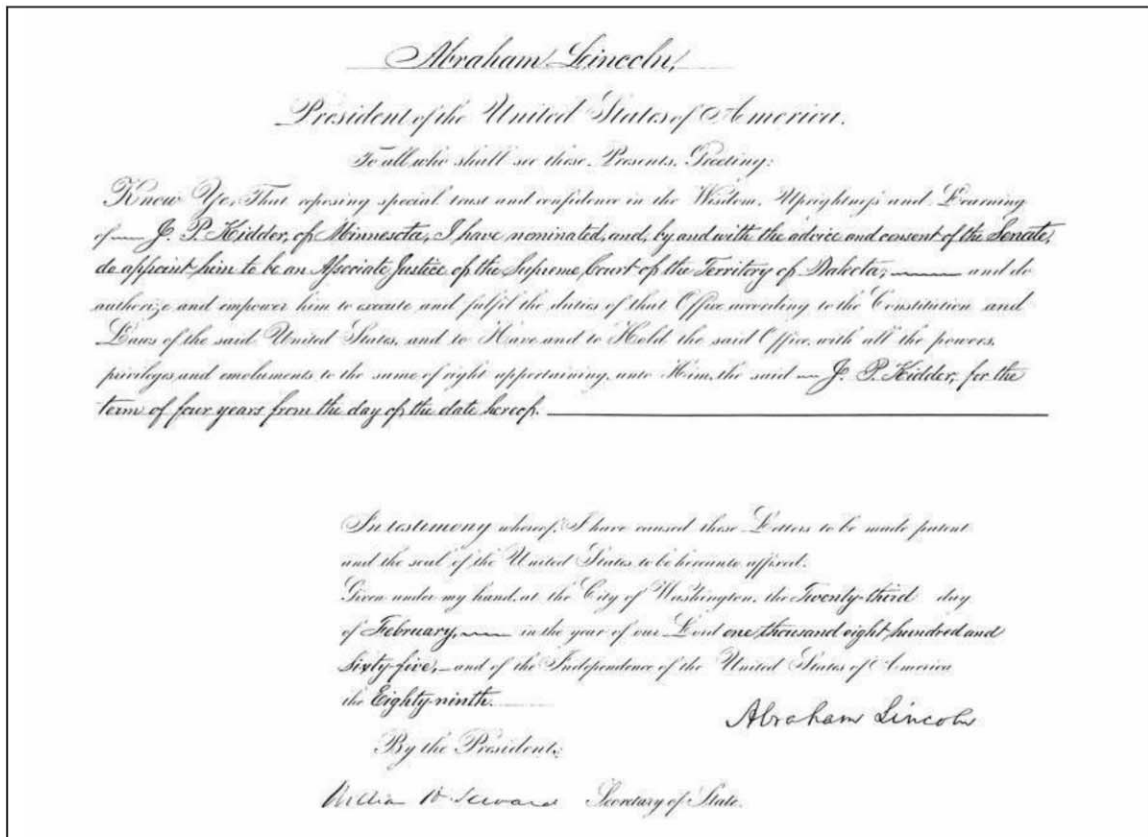 Abraham Lincoln,
President of the United States of America.
To all who shall see these Presents, Greeting:
Know Ye, That reposing special trust and confidence in the Wisdom, Uprightness and Learning
of J. P. Kidder, of Minnesota, I have nominated, and, by and with the advice and consent of the Senate,
do appoint him to be an Associate Justice of the Supreme Court of the Territory of Dakota, and do
authorize and empower him to execute and fulfil the duties of that Office according to the Constitution and
Laws of the said United States, and to Have and to Hold the said Office, with all the powers,
privileges and emoluments to the same of right appertaining, unto Him, the said J. P. Kidder, for the
term of four years from the day of the date hereof.
In testimony whereof, I have caused these Letters to be made patent
and the seal of the United States to be hereunto affixed.
Given under my hand, at the City of Washington, the Twenty-third day
of February, in the year of our Lord one thousand eight hundred and
sixty-five, and of the Independence of the United States of America
the Eighty-ninth.
Abraham Lincoln
By the President:
William H. Seward Secretary of State.